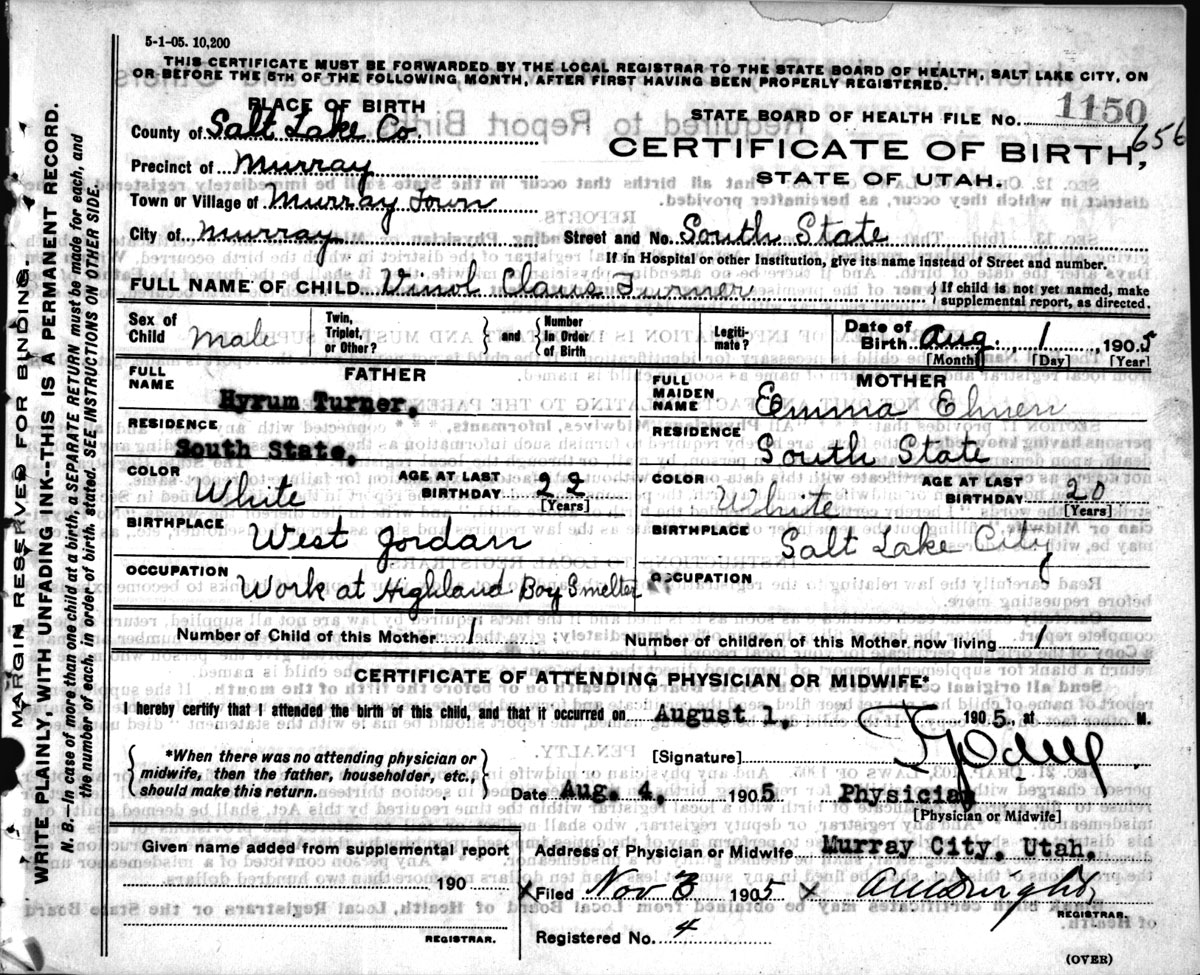 5-1-05. 10,200
THIS CERTIFICATE MUST BE FORWARDED BY THE LOCAL REGISTRAR TO THE STATE BOARD OF HEALTH, SALT LAKE CITY, ON
OR BEFORE THE 5TH OF THE FOLLOWING MONTH, AFTER FIRST HAVING BEEN PROPERLY REGISTERED.
PLACE OF BIRTH
STATE BOARD OF HEALTH FILE NO. 1150
656
County of Salt Lake Co.
CERTIFICATE OF BIRTH,
STATE OF UTAH.
Precinct of Murray
Town or Village of Murray Town
City of Murray
Street and No. South State
If in Hospital or other Institution, give its name instead of Street and number.
FULL NAME OF CHILD Vinol Claus Turner
{If child is not yet named, make
supplemental report, as directed.
Sex of Child Male
Twin, Triplet, or Other?
and
Number In Order of Birth
Legiti-mate?
Date of Birth Aug. 1, 1905
[Month] [Day] [Year]
FATHER
FULL NAME
Hyrum Turner.
RESIDENCE
South State.
COLOR White
AGE AT LAST BIRTHDAY 22
[Years]
BIRTHPLACE West Jordan
OCCUPATION Work at Highland Boy Smelter
MOTHER
FULL MAIDEN NAME Emma
RESIDENCE South State
COLOR White
AGE AT LAST BIRTHDAY 20
[Years]
BIRTHPLACE Salt Lake City
OCCUPATION
Number of Child of this Mother 1
Number of children of this Mother now living 1
CERTIFICATE OF ATTENDING PHYSICIAN OR MIDWIFE*
I hereby certify that I attended the birth of this child, and that it occurred on August 1, 1905, at M.
{*When there was no attending physician or
midwife, then the father, householder, etc.,
should make this return.}
[Signature]
Date Aug. 4, 1905
Physician
[Physician or Midwife]
Given name added from supplemental report
190
REGISTRAR.
Address of Physician or Midwife Murray City, Utah.
X Filed Nov 3 1905 X
REGISTRAR.
Registered No. 4
(OVER)
MARGIN RESERVED FOR BINDING.
WRITE PLAINLY, WITH UNFADING INK--THIS IS A PERMANENT RECORD.
N. B.--In case of more than one child at a birth, a SEPARATE RETURN must be made for each, and
the number of each, in order of birth, stated. SEE INSTRUCTIONS ON OTHER SIDE.